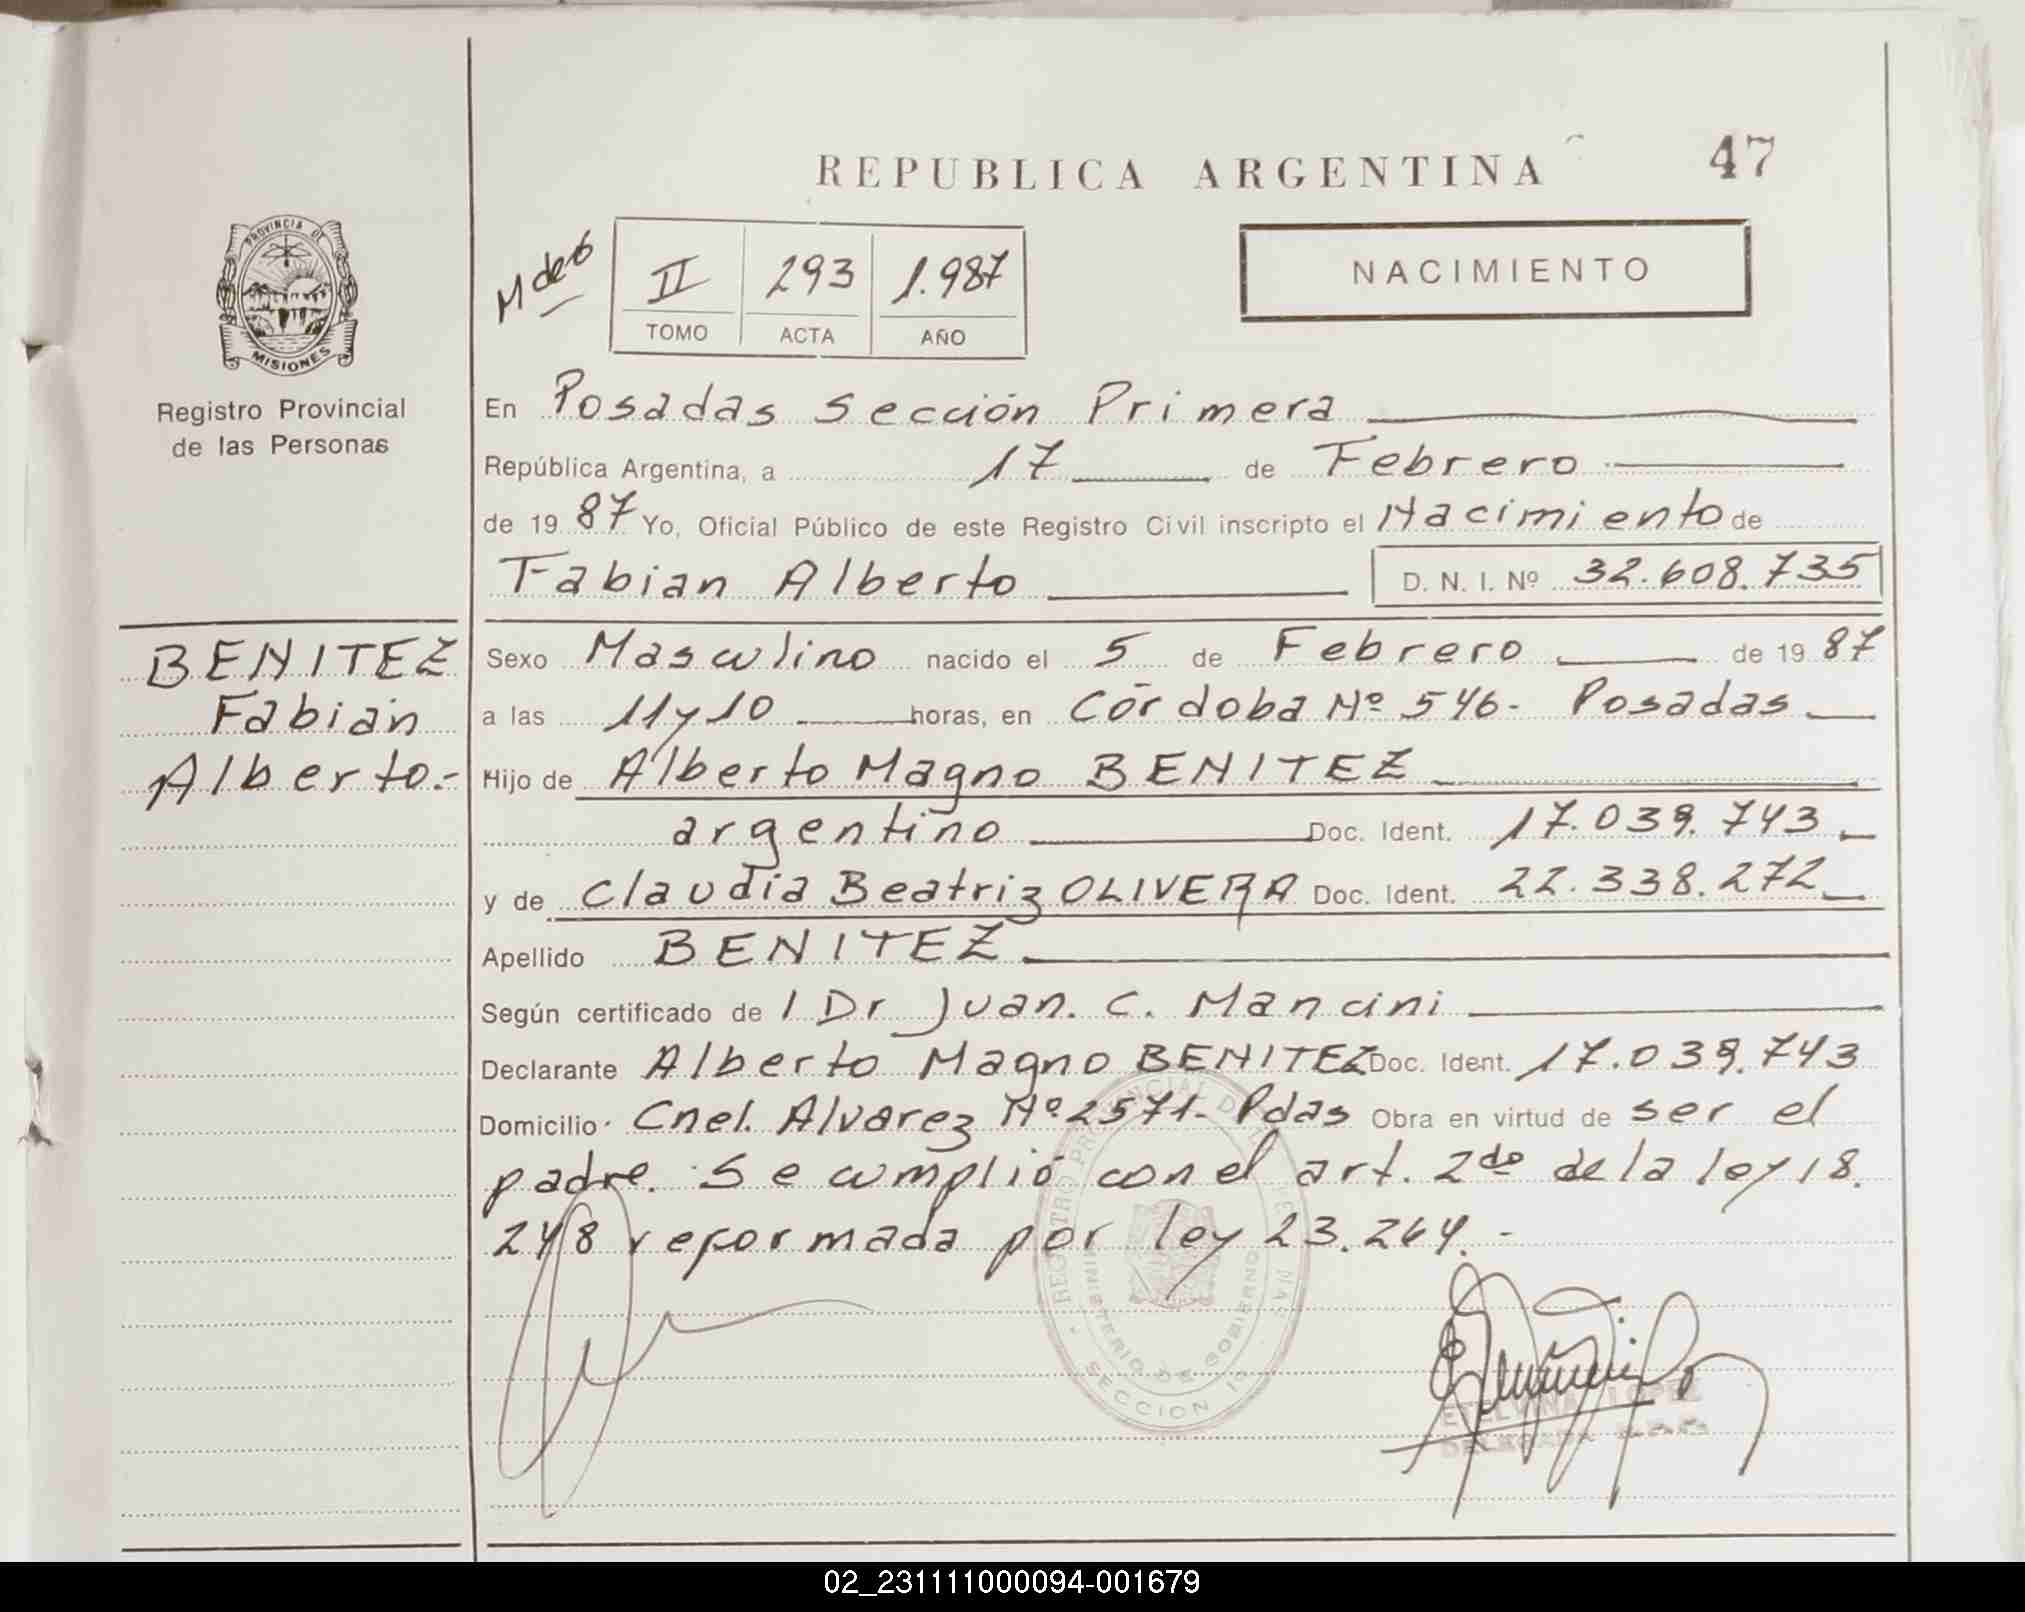 REPUBLICA ARGENTINA
47
PROVINCIA DE
MISIONES
Registro Provincial
de las Personas
M de 6
II 293 1.987
TOMO ACTA AÑO
NACIMIENTO
En Posadas sección Primera
República Argentina, a 17 de Febrero
de 19 87 Yo, Oficial Público de este Registro Civil inscripto el Nacimiento de
Fabian Alberto D. N. I. Nº 32.608.735
BENITEZ
Fabian
Alberto.-
Sexo Masculino nacido el 5 de Febrero de 19 87
a las 11 y 10 horas, en Córdoba Nº 546- Posadas
Hijo de Alberto Magno BENITEZ
argentino Doc. Ident. 17.039.743
y de Claudia Beatriz OLIVERA Doc. Ident. 22.338.272
Apellido BENITEZ
Según certificado de l Dr Juan. C. Mancini
Declarante Alberto Magno BENITEZ Doc. Ident. 17.039.743
Domicilio Cnel. Alvarez Nº 2571- Pdas Obra en virtud de ser el
padre. Se cumplió con el art. 2do de la ley 18.
248 reformada por ley 23.264.-
REGISTRO PROVINCIAL DE LAS
MINISTERIO DE GOBIERNO
SECCION 1º
ETELVINA LOPEZ
DELEGADA
02_231111000094-001679